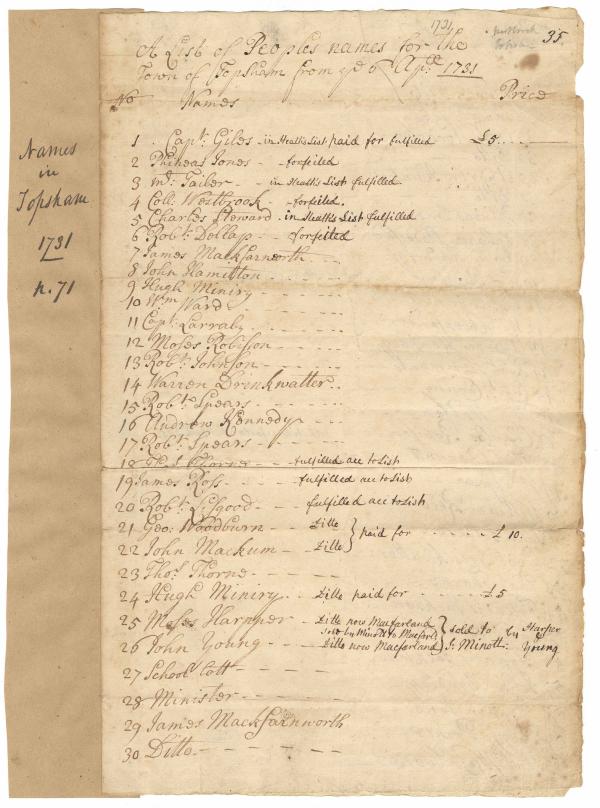 1731
35
A List of Peoples names for the
Town of Topsham from ye 6 Apr. 1731
No Names Price
Names
in
Topsham
1731
n. 71
1 Capt. Giles - in Heath's List paid for fulfilled £5
2 Phineas Jones - forfeited
3 Mr. Tailer - - in Heath's List fulfilled.
4 Coll. Westbrook - forfeited.
5 Charles Steward - in Heath's List fulfilled
6 Robt. Dollap - forfeited
7 James Mackfarnorth
8 John Hamilton
9 Hugh Miniry
10 Wm Ward
11 Capt. Larraby
12 Moses Robison
13 Robt. Johnson
14 Warren Drinkwatter
15 Robt. Spears
16 Andrew Kennedy
17 Robt. Spears
18 Thos. Thorne - - fulfilled acc to List
19 James Ross - fulfilled acc to List
20 Robt. Lifgood - fulfilled acc to List
21 Geo: Woodburn - Ditto
} paid for £ 10.
22 John Mackum - Ditto
23 Thos. Thorne
24 Hugh Miniry - Ditto paid for £5
25 Moses Harpper - Ditto now Macfarland
Sold by Minot to Macfarld } sold to J. Minott: by Harper & Young
26 John Young - Ditto now Macfarland
27 School Lott
28 Minister
29 James Mackfairnworth
30 Ditto